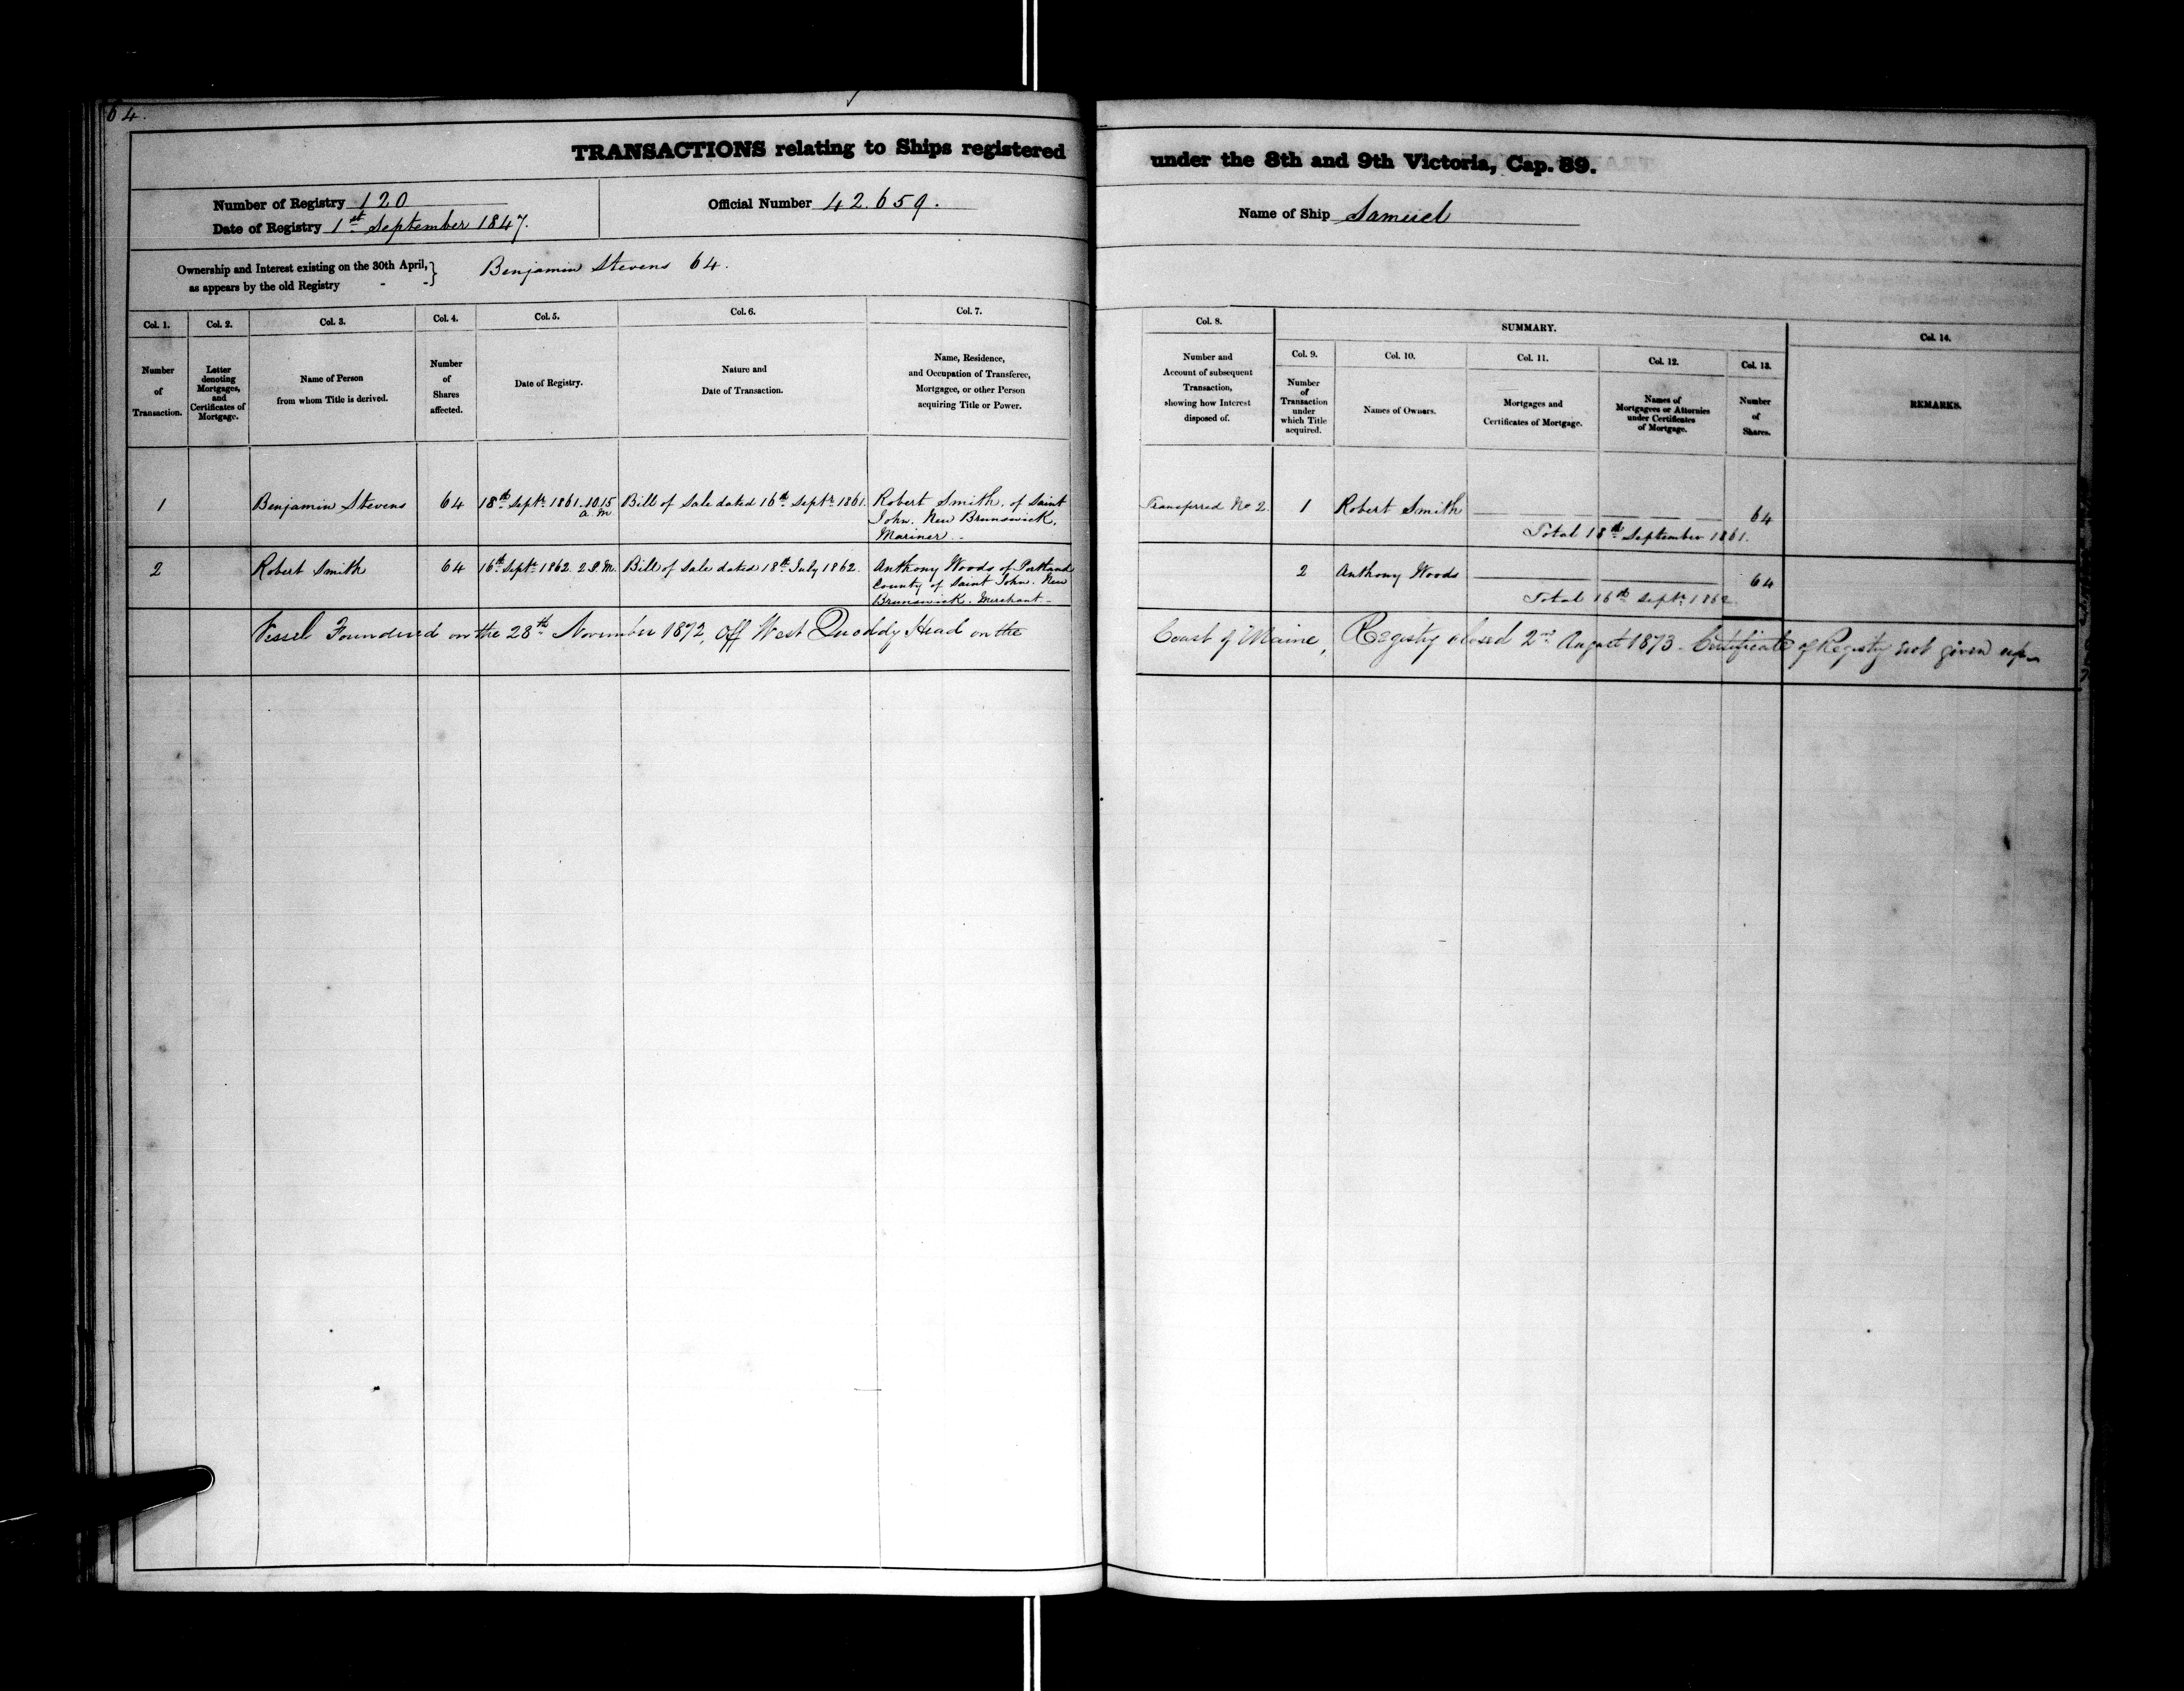 64.
TRANSACTIONS relating to Ships registered under the 8th and 9th Victoria, Cap. 89.
Number of Registry 120
Date of Registry 1st September 1847.
Official Number 42.659.
Name of Ship Samuel
Ownership and Interest existing on the 30th April,
as appears by the old Registry - -
Benjamin Stevens 64.
Col. 1.
Number
of
Transaction.
Col. 2.
Letter
denoting
Mortgages,
and
Certificates of
Mortgage.
Col. 3.
Name of Person
from whom Title is derived.
Col. 4.
Number
of
Shares
affected.
Col. 5.
Date of Registry.
Col. 6.
Nature and
Date of Transaction.
Col. 7.
Name, Residence,
and Occupation of Transferee,
Mortgagee, or other Person
acquiring Title or Power.
Col. 8.
Number and
Account of subsequent
Transaction,
showing how Interest
disposed of.
SUMMARY.
Col. 9.
Number
of
Transaction
under
which Title
acquired.
Col. 10.
Names of Owners.
Col. 11.
Mortgages and
Certificates of Mortgage.
Col. 12.
Names of
Mortgagees or Attornies
under Certificates
of Mortgage.
Col. 13.
Number
of
Shares.
Col. 14.
REMARKS.
1
Benjamin Stevens
64
18th Septr 1861. 10.15
a. m.
Bill of Sale dated 16th Septr 1861.
Robert Smith, of Saint
John. New Brunswick.
Mariner.
Transferred No 2.
1
Robert Smith
64
Total 18th September 1861.
2
Robert Smith
64
16th Septr 1862. 2 P.M.
Bill of Sale dated 18th July 1862.
Anthony Woods of Portland
County of Saint John. New
Brunswick. Merchant.
2
Anthony Woods
64
Total 16th Septr 1862.
Vessel Foundered on the 28th November 1872, off West Quoddy Head on the Coast of Maine, Registry closed 2nd August 1873. Certificate of Registry not given up